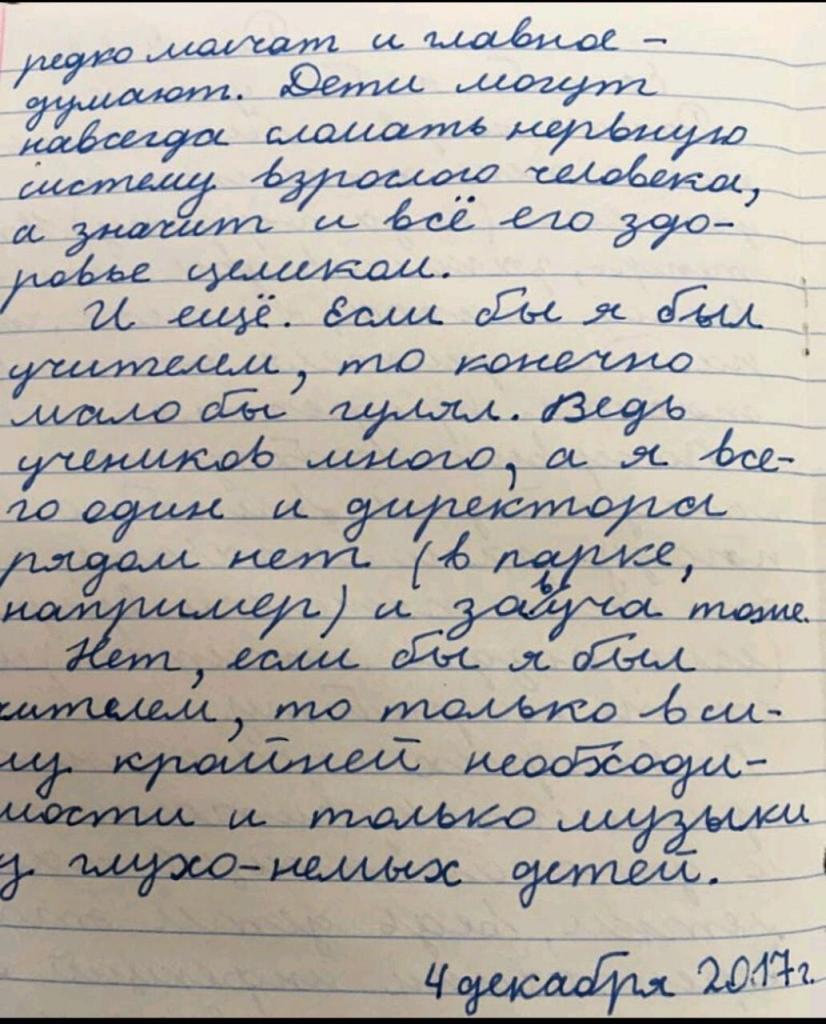 редко молчат и главное -
думают. Дети могут
навсегда сломать нервную
систему взрослого человека,
а значит и всё его здо-
ровье целиком.
И ещё. Если бы я был
учителем, то конечно
мало бы гулял. Ведь
учеников много, а я все-
го один и директора
рядом нет (в парке,
например) и завуча тоже.
Нет, если бы я был
чителем, то только в си-
лу крайней необходи-
мости и только музыки
у глухо-немых детей.
4 декабря 2017 г.